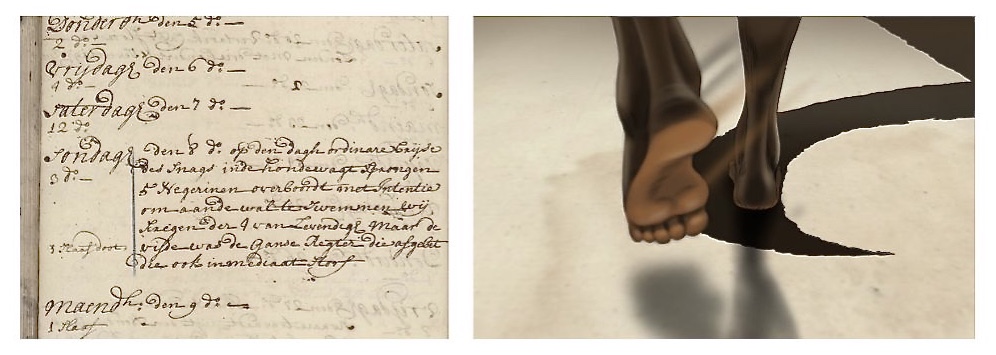 Donderdh den 5 do —
2 do —
Vrijdagh den 6 do —
4 do —
Saterdagh den 7 do —
12 do
Sondagh den 8 do op den dagh ordinare
3 do —
des Snags inde hondewagt Sprongen
5 Negerinen overboordt met Intentie
om aande wal te Zwemmen wij
kregen der 4 van Levendigh Maar de
1 Slaaf doot
vijfde was de Ganse
die ook inmediaat Storf
Maendh den 9 do —
1 Slaaf